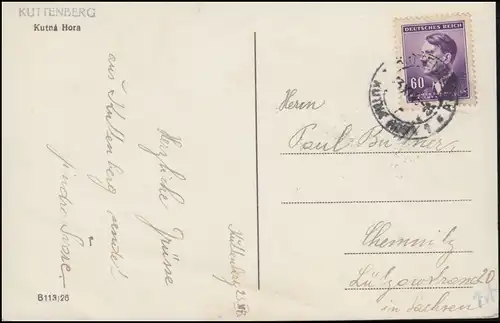 KUTTENBERG
Kutná Hora
Herzliche Grüsse
aus Kuttenberg sendet
Kuttenberg
B113;26
DEUTSCHES REICH
60
Herrn
Paul
Chemnitz
Lützowstr
in Sachsen